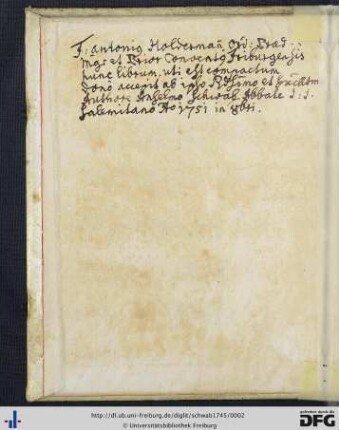 F: Antoniq Holderman̄ Ord: Præd:
Mgr et Prior Conventq Friburgensis
hunc librum, uti est compactum
dono accepit ab ipso Rdssmo et
Authore Anselmo Schwab Abbate
Salemitano Ao 1751 in 8bri.
http://dl.ub.uni-freiburg.de/diglit/schwab1745/0002
© Universitätsbibliothek Freiburg
gefördert durch die
DFG